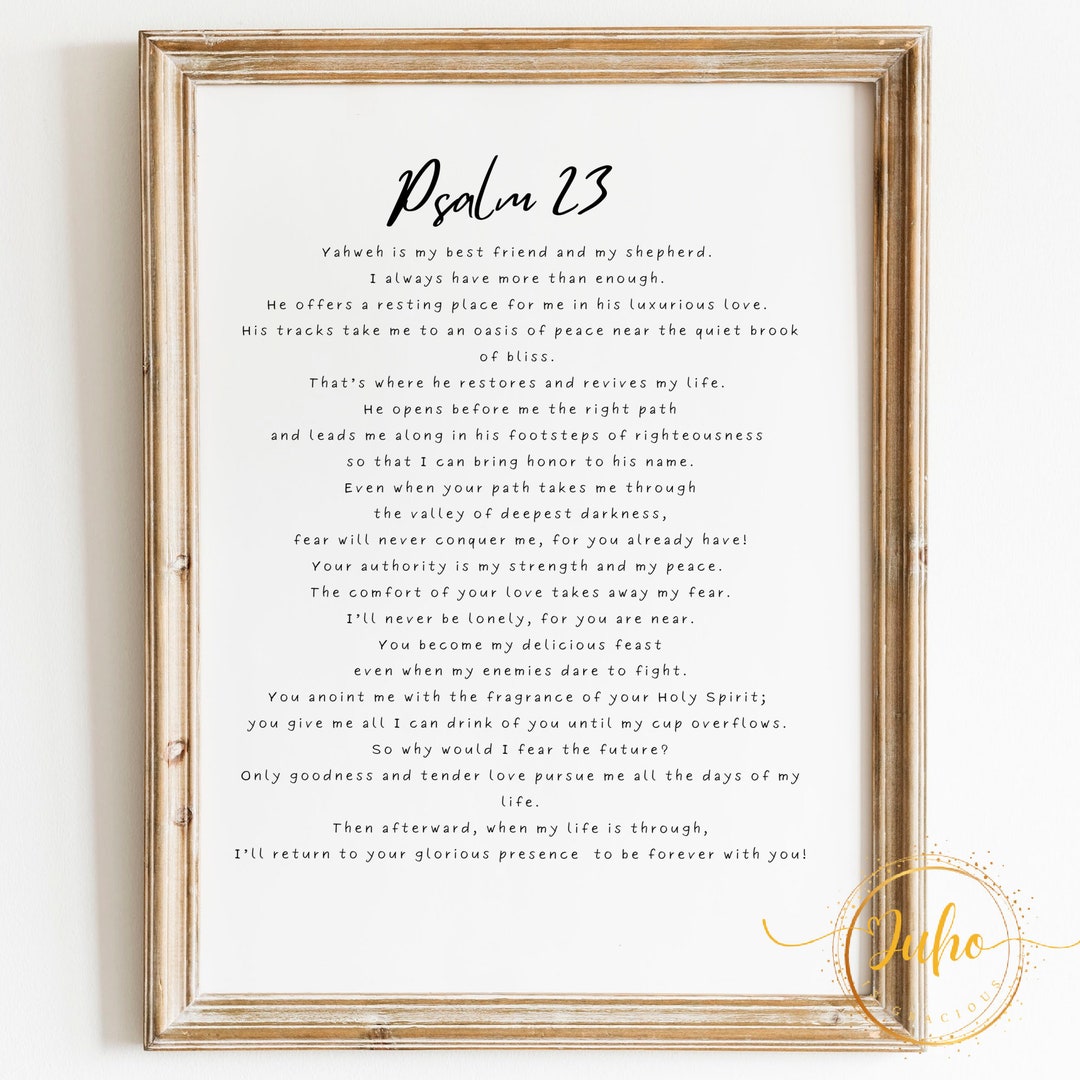 Psalm 23
Yahweh is my best friend and my shepherd.
I always have more than enough.
He offers a resting place for me in his luxurious love.
His tracks take me to an oasis of peace near the quiet brook
of bliss.
That's where he restores and revives my life.
He opens before me the right path
and leads me along in his footsteps of righteousness
so that I can bring honor to his name.
Even when your path takes me through
the valley of deepest darkness,
fear will never conquer me, for you already have!
Your authority is my strength and my peace.
The comfort of your love takes away my fear.
I'll never be lonely, for you are near.
You become my delicious feast
even when my enemies dare to fight.
You anoint me with the fragrance of your Holy Spirit;
you give me all I can drink of you until my cup overflows.
So why would I fear the future?
Only goodness and tender love pursue me all the days of my
life.
Then afterward, when my life is through,
I'll return to your glorious presence  to be forever with you!
Juho
GRACIOUS